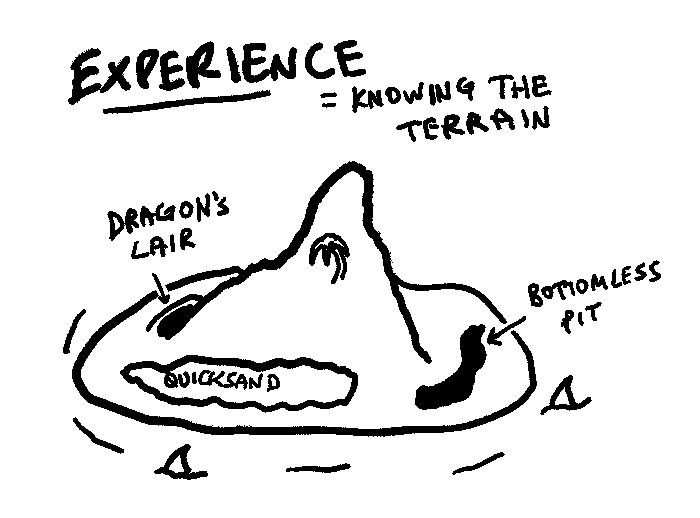 EXPERIENCE
= KNOWING THE
TERRAIN
DRAGON'S
LAIR
BOTTOMLESS
PIT
QUICKSAND